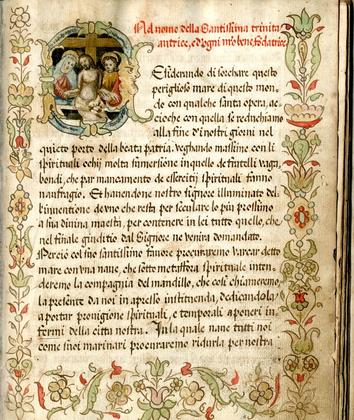 Nel nome della Santissima trinita
autrice, e d'ogni nr̃o bene fedatrice
Esiderando di secchare questo
periglioso mare di questo mon,
do con qualche santa opera, ac,
cioche con quella se reduchiamo
alla fine d'i nostri giorni nel
quieto porto della beata patria. veghando massime con li
spirituali ochij molta sumersione in quello de fratelli vaga,
bondi, che par mancamento de essercitij spirituali fanno
naufragio. Et havendone nostro signore illuminato del,
l'inventione de uno che resta per seculare lo piu prossimo
a sua divina maestà, per contenere in lei tutto quello, che
nel finale giuditio dal Signore ne venira domandato.
Mercio col suo santissimo favore procuraremo varcar detto
mare con una nave, che sotto metaffora spirituale inten-
deremo la compagnia del mandillo, che così chiameremo,
la presente da noi in apresso instituenda, dedicandola
a portar provigione spirituali, e temporali a poveri in-
fermi della città nostra. In la quale nave tutti noi
come suoi marinari procuraremo ridurla per nostra